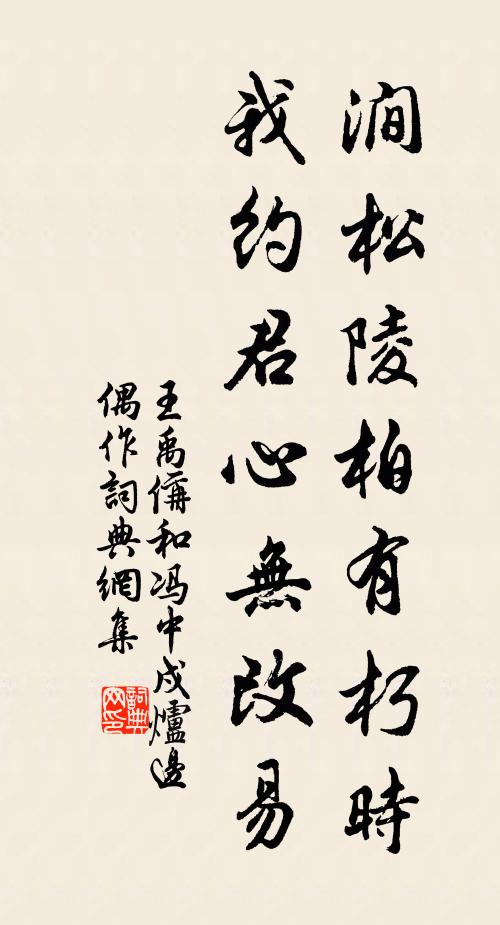 澗松陵柏有朽時
我約君心無改易
王禹偁和冯中戍爐邊
偶作詞典網集
詞典網印